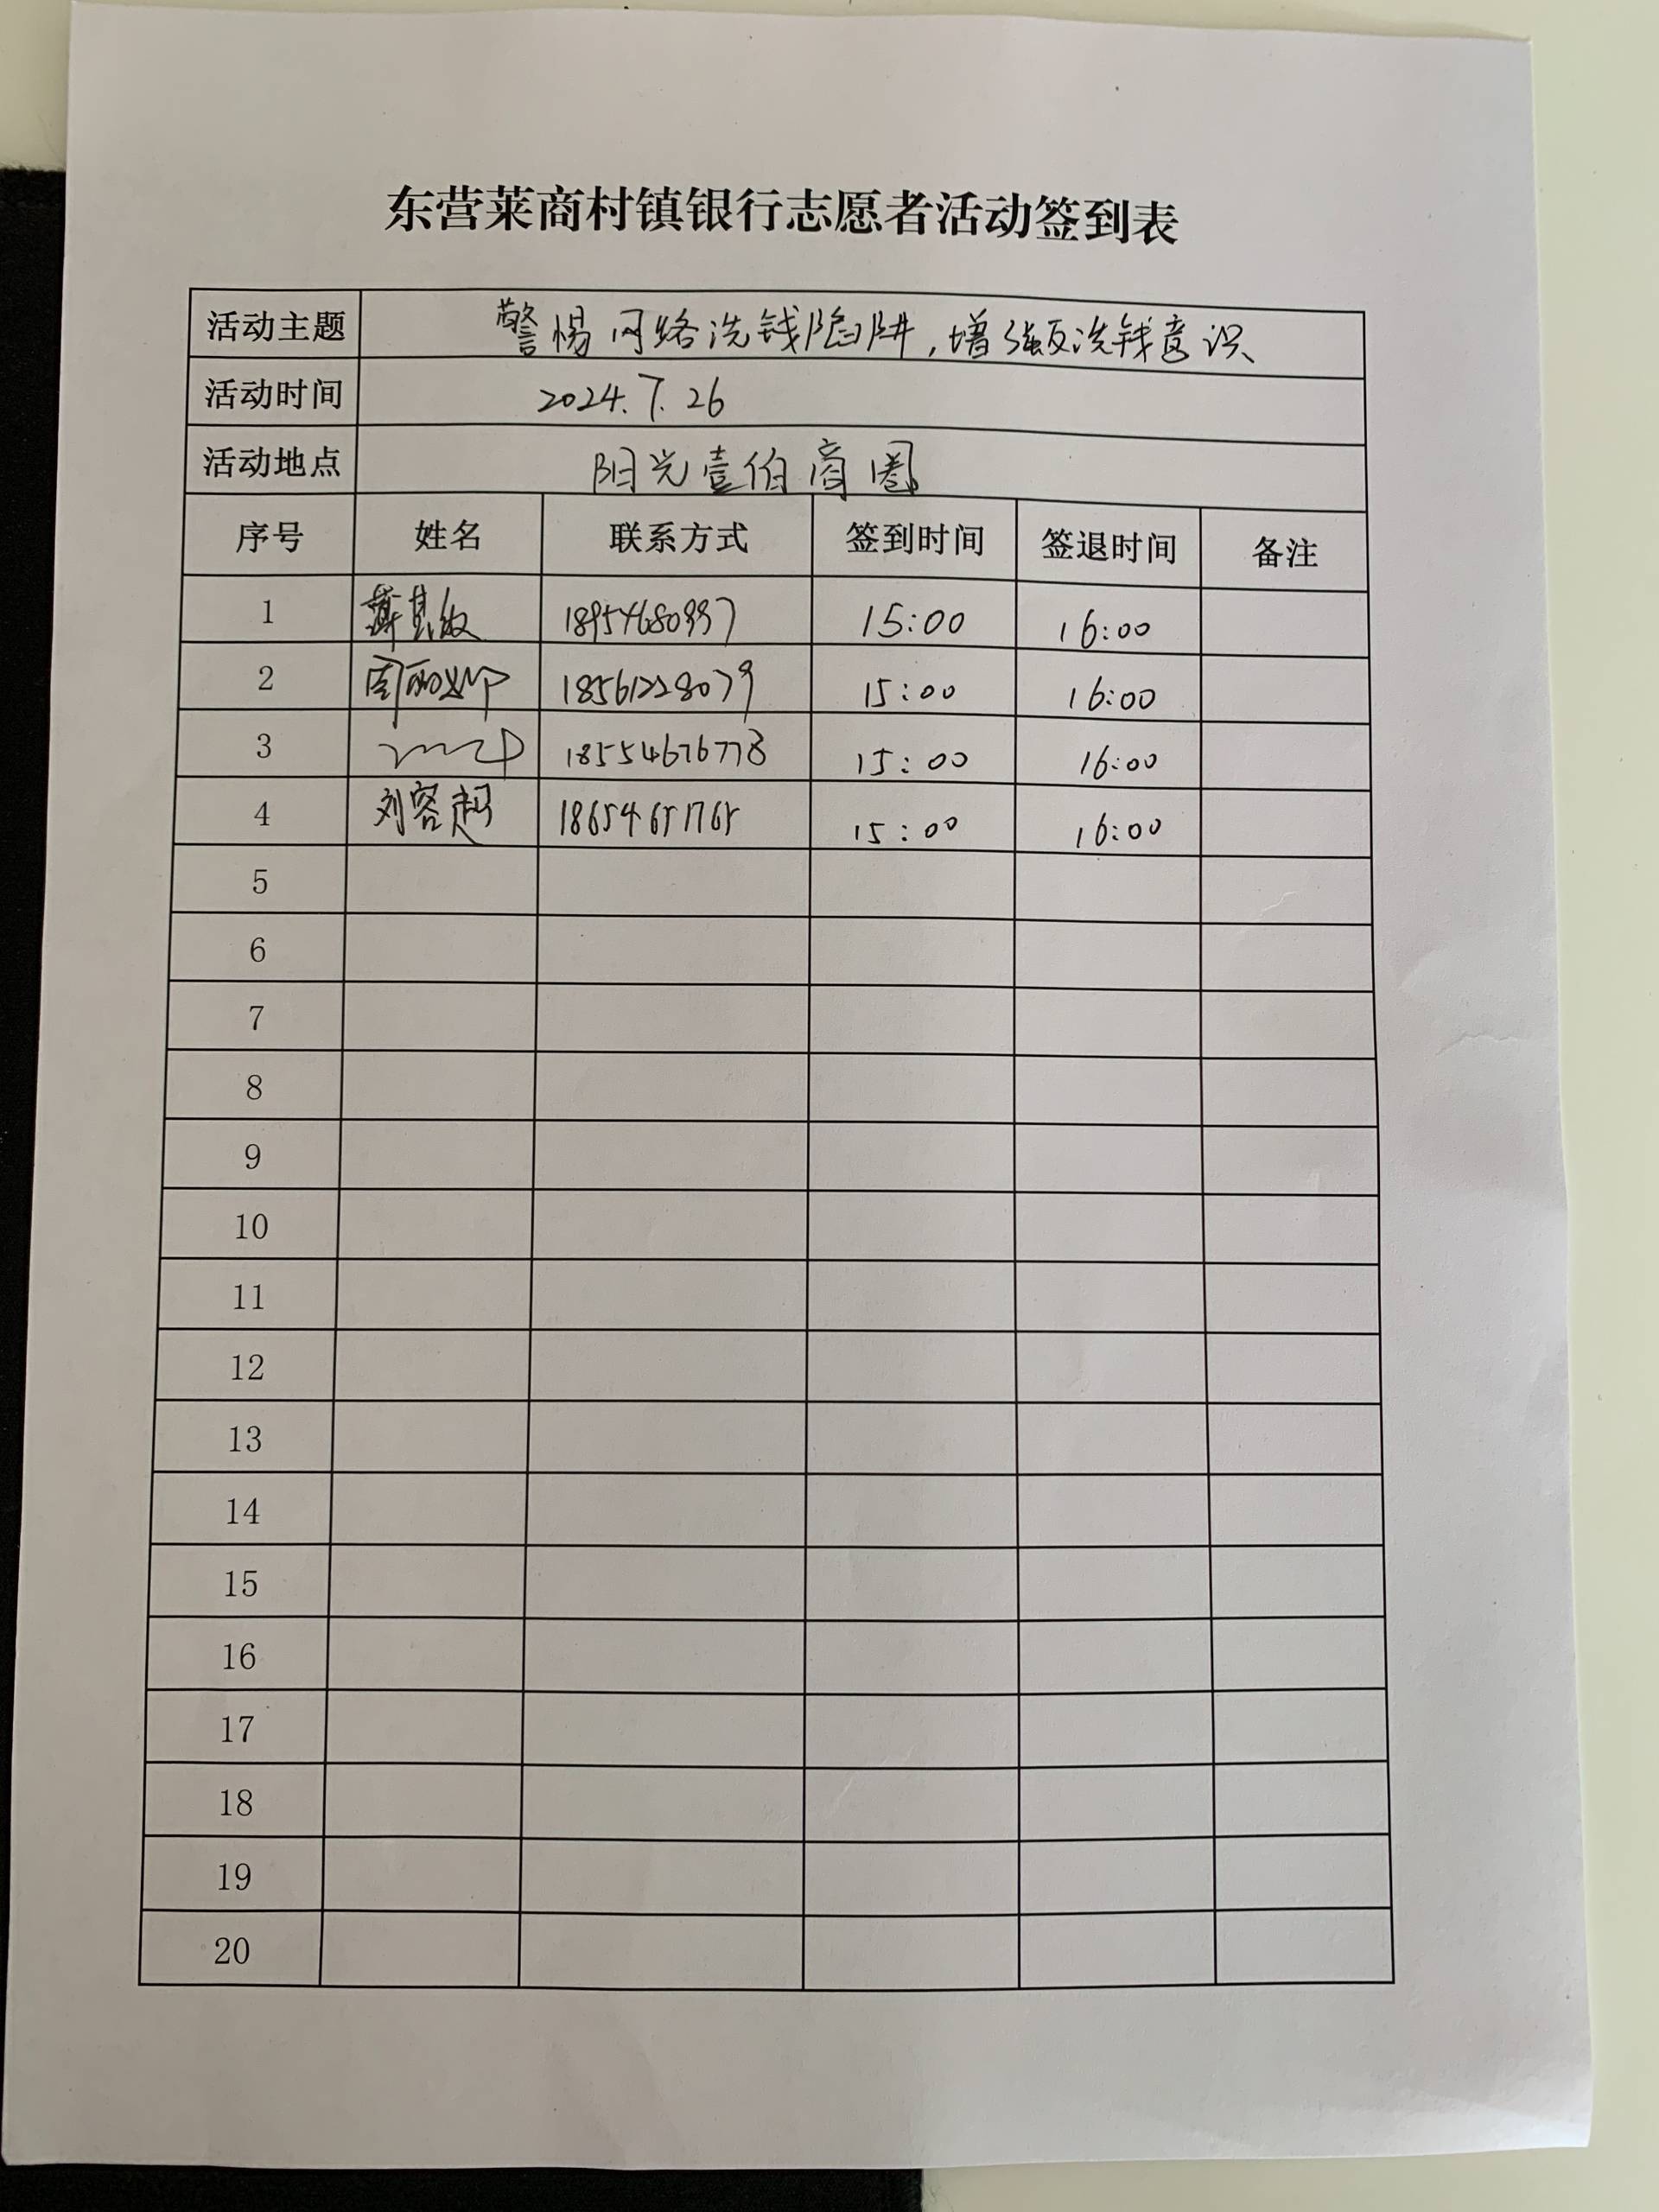 东营莱商村镇银行志愿者活动签到表
活动主题 警惕网络洗钱陷阱,增强反洗钱意识
活动时间 2024.7.26
活动地点 阳光壹佰商圈
序号 姓名 联系方式 签到时间 签退时间 备注
1 18954680997 15:00 16:00
2 18561228079 15:00 16:00
3 18554676778 15:00 16:00
4 刘容超 18654651765 15:00 16:00
5
6
7
8
9
10
11
12
13
14
15
16
17
18
19
20